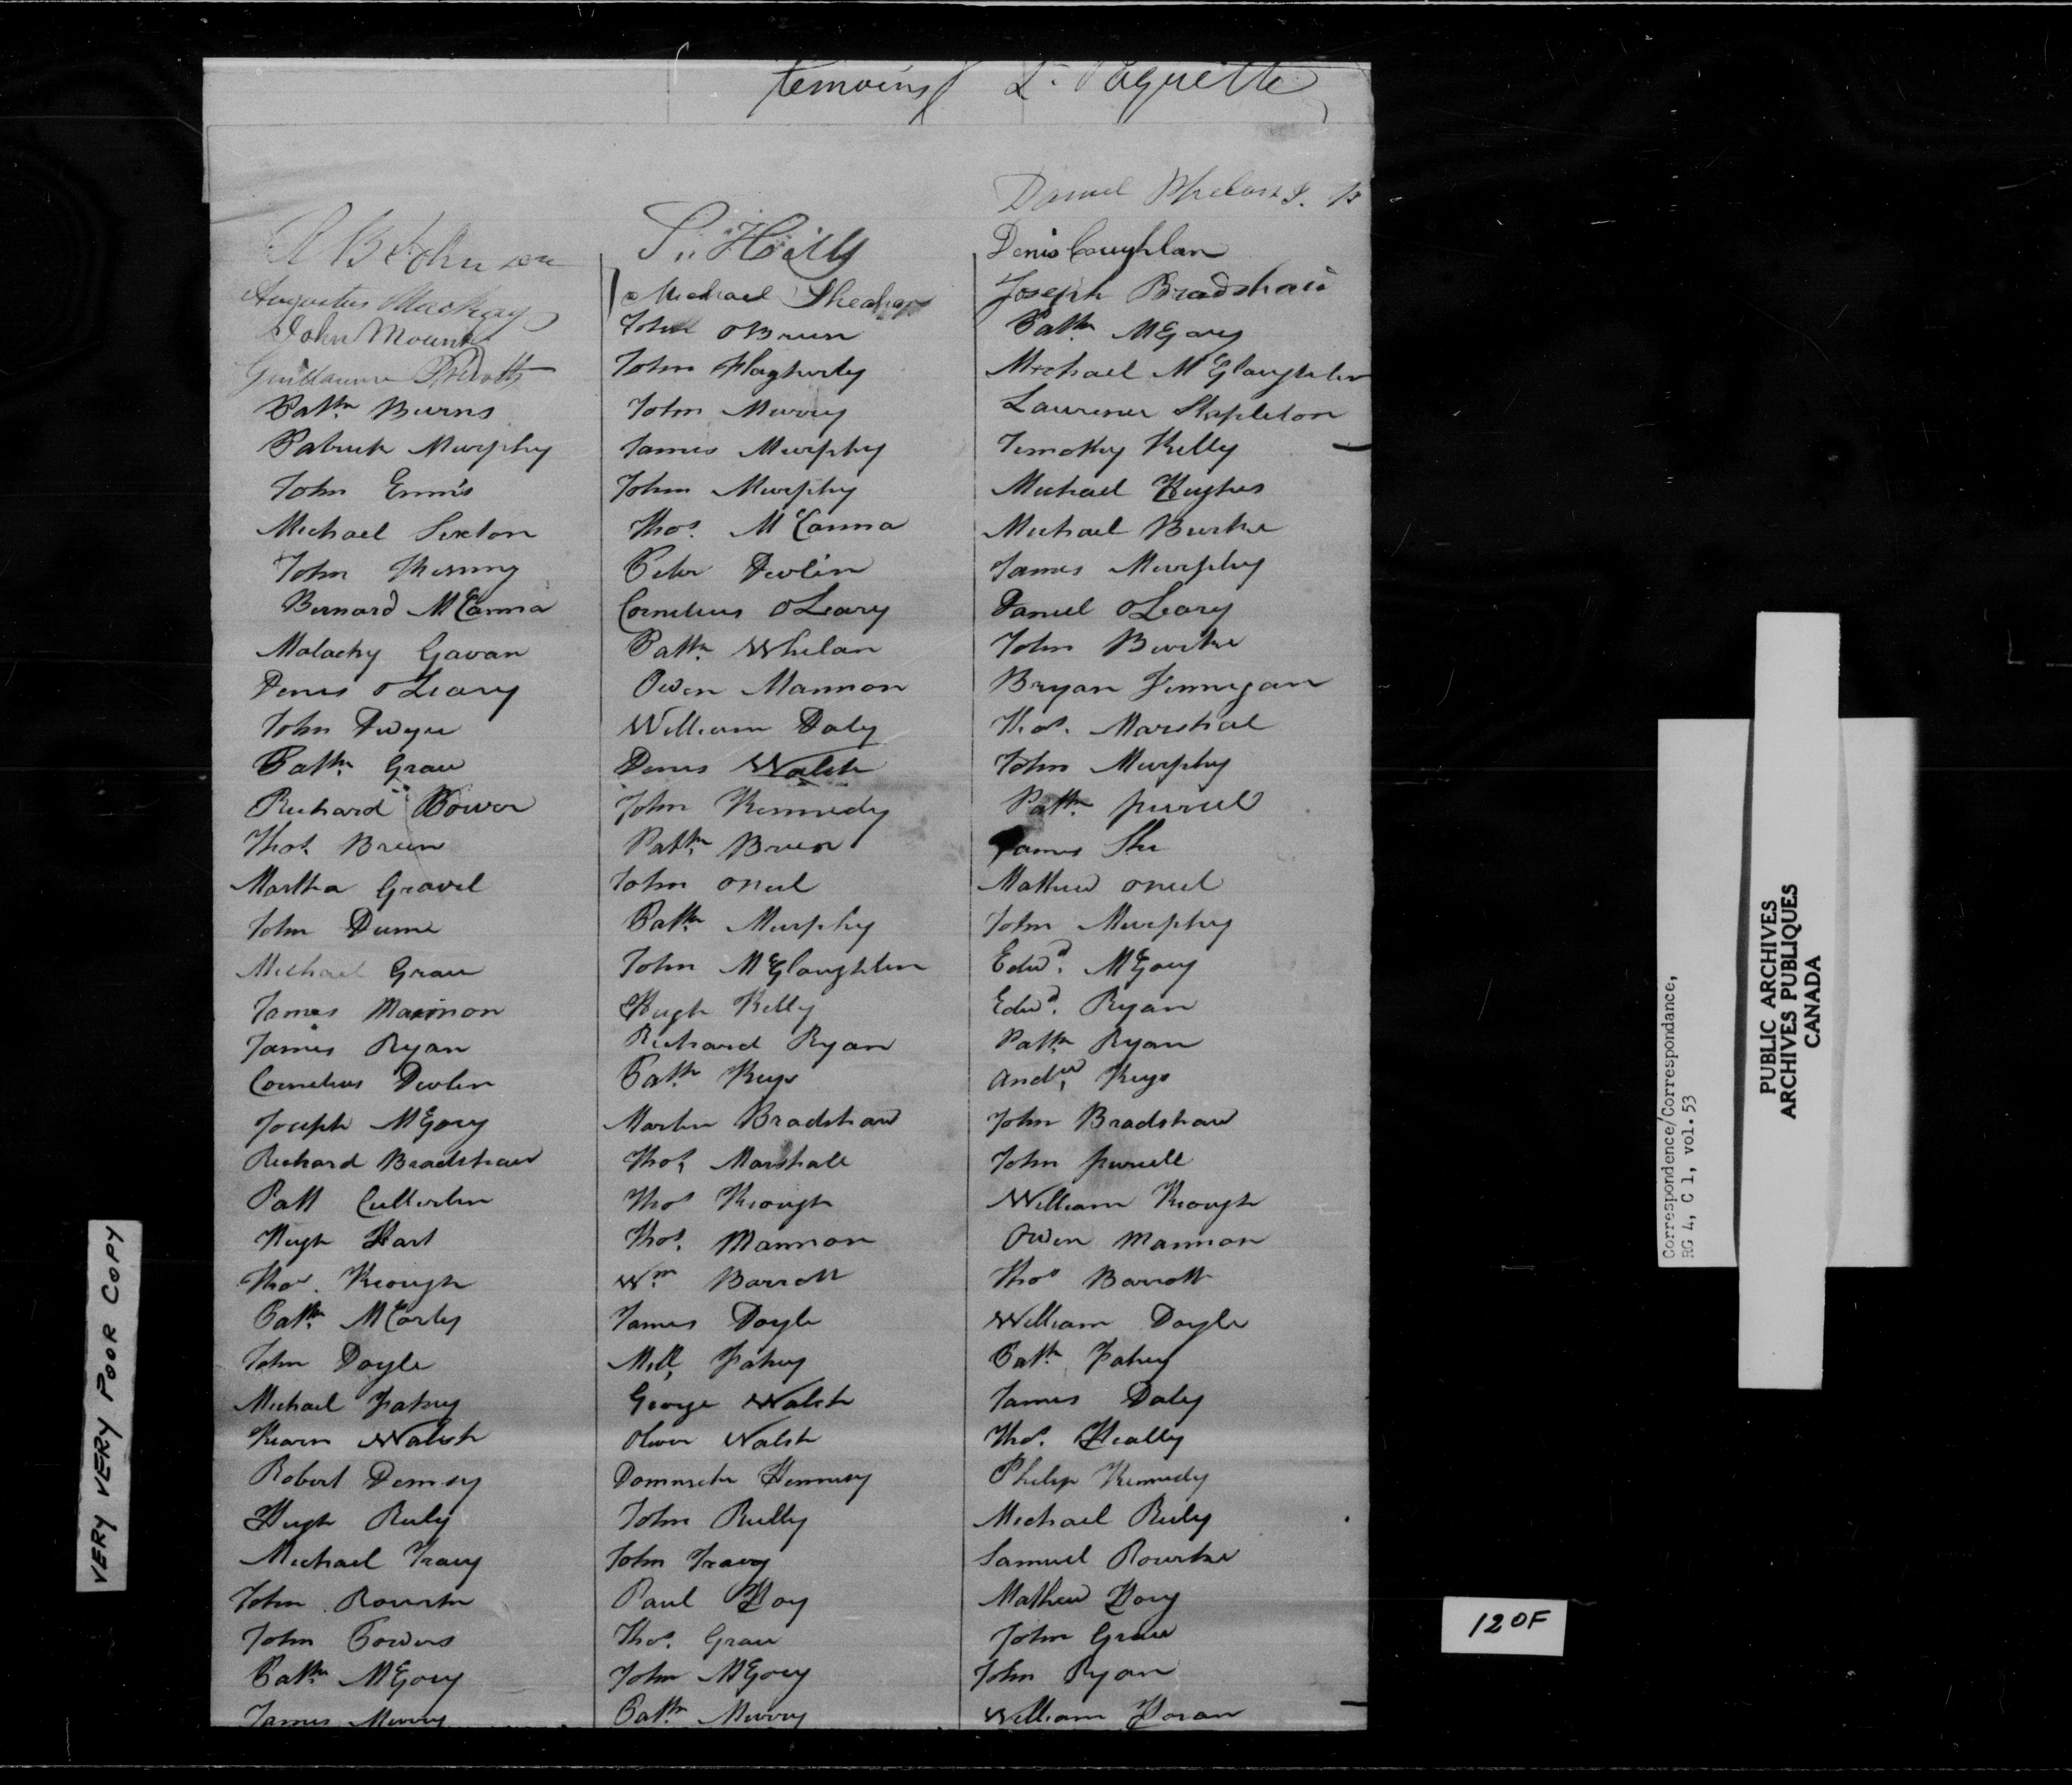 temoins L. Paquette
A B Johnson
Augustus Mackay
John Mount
Guillaume
Patk. Burns
Patrick Murphy
John Ennis
Michael Sexton
John
Bernard McCanna
Malachy Gavan
Denis oLeary
John Dwyer
Patk. Grace
Richard Power
Thos. Breen
Martha Gravel
John Dunne
Michael Grace
James Mannon
James Ryan
Cornelius Devlin
Joseph McGory
Richard Bradshaw
Patt Cullerton
Hugh Hart
Thos. Keough
Patk. McCarty
John Doyle
Michael Fahey
Kearn Walsh
Robert Demsey
Hugh Rely
Michael Tracy
John Rourke
John Powers
Patk. McGory
James Murry
S. Hills
Michael Sheahan
John oBrien
John Flagherty
John Murry
James Murphy
John Murphy
Thos. McCanna
Peter Devlin
Cornelius oLeary
Patk. Whelan
Owen Mannon
William Daly
Denis Walsh
John Kennedy
Patk. Breen
John oneil
Patk. Murphy
John McGlaughlin
Hugh Kelly
Richard Ryan
Patk. Keys
Martin Bradshaw
Thos. Marshall
Thos Keough
Thos. Mannon
Wm. Barrott
James Doyle
Mll, Fahey
George Walsh
Oliver Walsh
Dominick Hennesy
John Rielly
John Tracy
Paul Hoy
Thos. Grace
John McGory
Patk. Murry
Daniel
Denis Coughlan
Joseph Bradshaw
Patk. McGory
Michael McGlaughlin
Laurence Stapleton
Timothy Kelly
Michael Hughes
Michael Burke
James Murphy
Daniel oLeary
John Burke
Bryan Finnegan
Thos. Marshal
John Murphy
Patk. purcel
James She
Mathew oneil
John Murphy
Edwd. McGory
Edwd. Ryan
Patk. Ryan
Andw. Keys
John Bradshaw
John purcell
William Keough
Owen Mannon
Thos Barrott
William Doyle
Patk. Fahey
James Daly
Thos. Heally
Philip Kennedy
Michael Rely
Samuel Rourke
Mathew Hoy
John Grace
John Ryan
William Horan
VERY VERY POOR COPY
Correspondence/Correspondance,
RG 4, C 1, vol.53
PUBLIC ARCHIVES
ARCHIVES PUBLIQUES
CANADA
12 OF